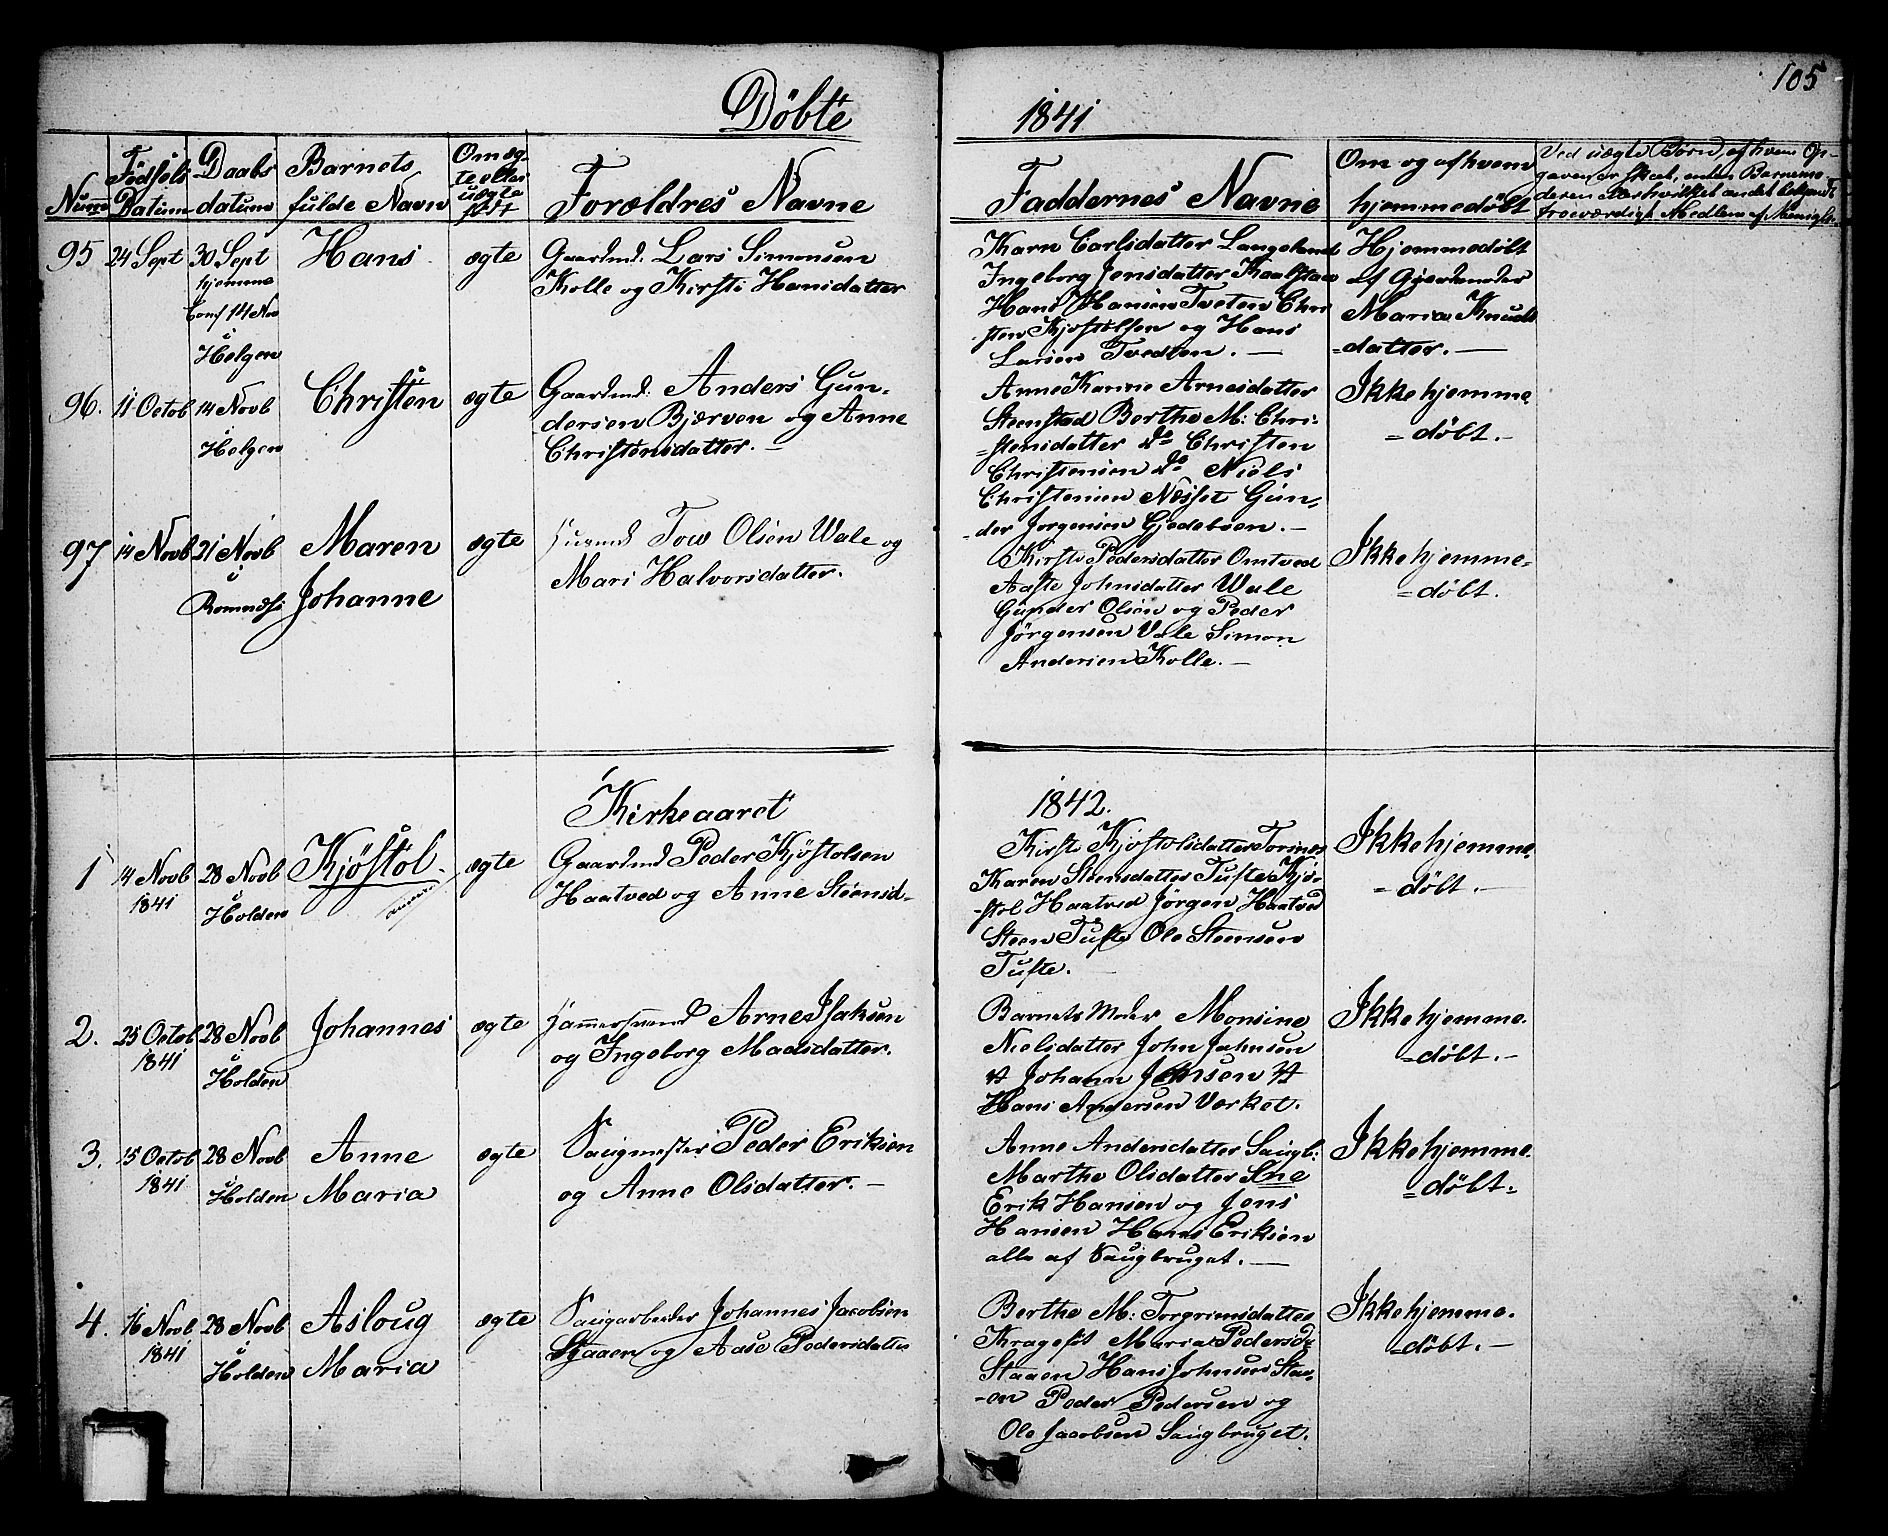 105
Döbte 1841
Numo
Födsels Datum
Daabs datum
Barnets fulde Navn
Om ægte eller uægte född
Forældres Navne
Faddernes Navne
Om og af hvem hjemmedöbt
Ved uægte Börn, af hvem Op-
95 24 Sept 30 Sept hjemme Conf 14 Nov i Helgen
Hans
ægte
Gaardmd. Lars Simonsen
Kolle og Kirsti Hansdatter
Karn Carlsdatter Langeland
Ingeborg Jensdatter
Hans Hansen Tveten Chri
sten Kjöstolsen og Hans
Larsen Tvedten. —
Hjemmedöbt
af Gjordemoder
Maria Knuds
=datter. —
96. 11 Octob 14 Novb i Helgen
Christen
ægte
Gaardmd. Anders Gun-
dersen Bjerven og Anne
Christensdatter. —
Anne Karine Arnesdatter
Steenstad Berthe M: Chri-
=stensdatter do Christen
Christensen do Niels
Christensen Næsset Gun-
=der Jorgensen Gjedeboen. —
Ikke hjemme-
=döbt. —
97 14 Novb 21 Novb i Romnæs
Maren
Johanne
ægte
Huusmd Tow Olsen Wale og
Mari Halvorsdatter.
Kirsti Pedersdatter Omtved
Aaste Johnsdatter Wale
Gunder Olsen og Peder
Jörgensen Vale Simon
Andersen Kolle. —
Ikke hjemme=
=döbt.
Kirkeaaret 1842.
1 14 Novb 1841 28 Novb i Holden
Kjöstöl.
ægte
Gaardmd Peder Kjöstolsen
Haatved og Anne Steensd-
Kirsti Kjöstolsdatter
Karen Steensdatter Tufte Kjö-
-stol Haatved Jörgen Haatved
Steen Tufte Ole Steensen
Tufte.
Ikke hjemme-
=döbt. —
2. 25 Octob 1841 28 Novb i Holden
Johannes
ægte
Hammersmed Arne Isaksen
og Ingeborg Madsdatter.
Barnets Moder Monsine
Nielsdatter John Jahnsen
Johann Jensen
Hans Andersen Verket.
Ikke hjemme-
=döbt. —
3. 15 Octob 1841 28 Novb i Holden
Anne
Maria
ægte
Saugmester Peder Eriksen
og Anne Olsdatter. —
Anne Andersdatter Saugb:
Marthe Olsdatter
Erik Hansen og Jens
Hansen Hans Eriksen
alle af Saugbruget. —
Ikke hjemme-
=döbt=
4. 16 Novb 1841 28 Novb i Holden
Asloug
Maria
ægte
Saugarbeider Johannes Jacobsen
Staaen og Aase Pedersdatter
Berthe M: Torgrimsdatter
Maria Pedersd:
Staaen Hans Johnsen Staa-
-en Peder Pedersen og
Ole Jacobsen Saugbruget.
Ikke hjemme-
=döbt. —